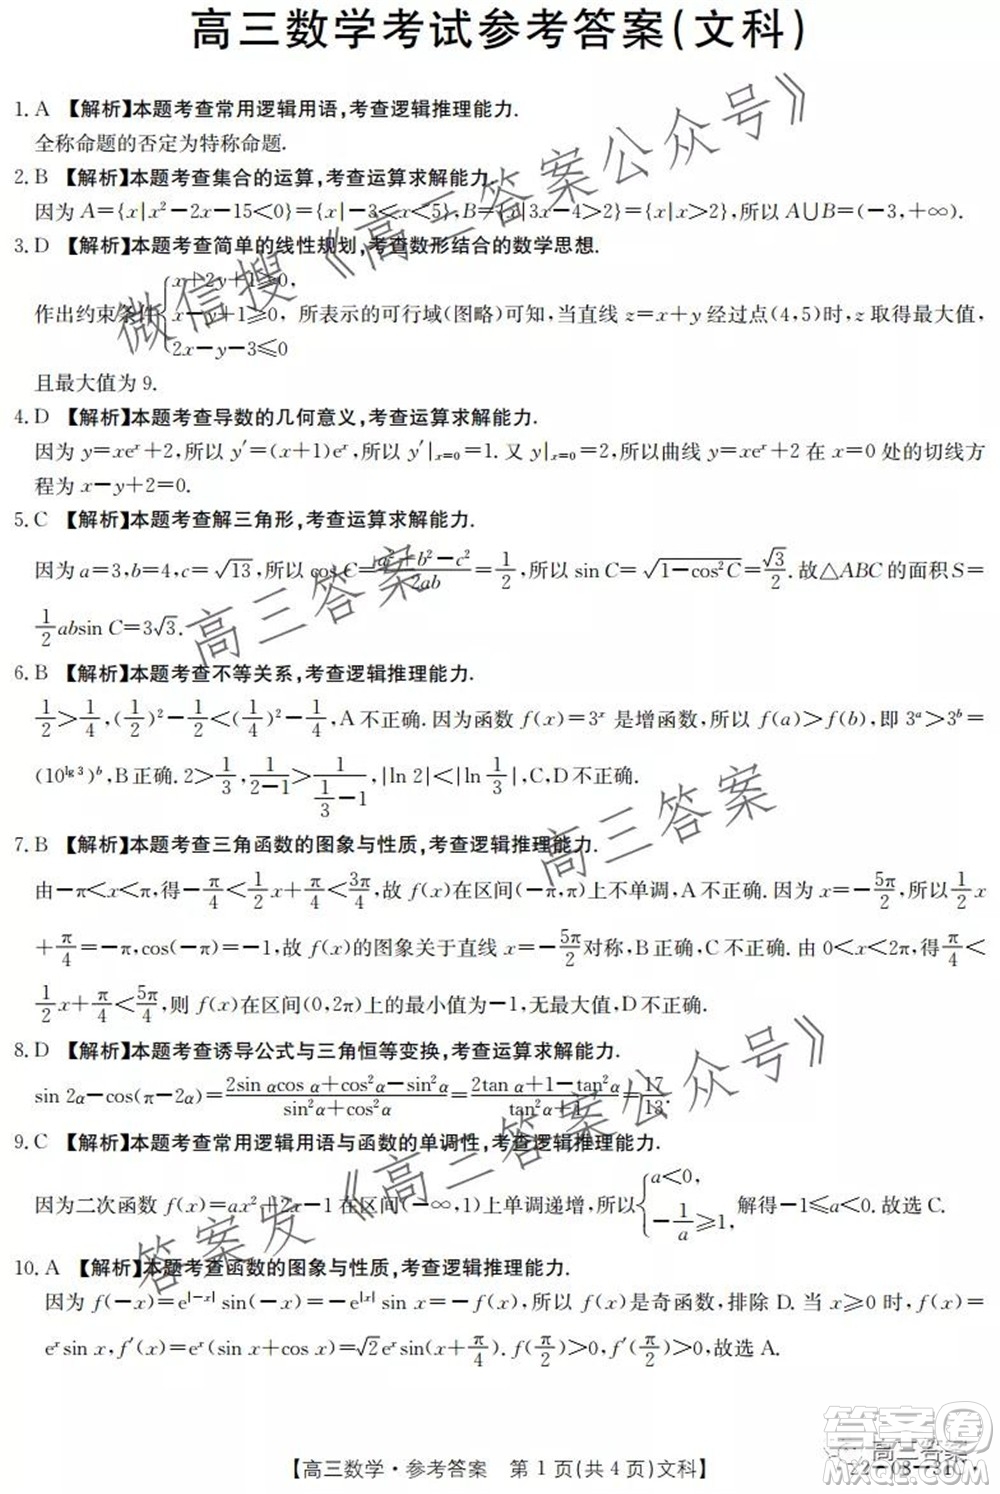 高三数学考试参考答案(文科)
1. A 【解析】本题考查常用逻辑用语,考查逻辑推理能力.
全称命题的否定为特称命题.
2. B 【解析】本题考查集合的运算,考查运算求解能力.
因为 A={x|x²-2x-15<0}={x|-3<x<5},B={x|3x-4>2}={x|x>2},所以 A∪B=(-3,+∞).
3. D 【解析】本题考查简单的线性规划,考查数形结合的数学思想.
作出约束条件{x+2y+1≥0, x-y+1≥0, 2x-y-3≤0 所表示的可行域(图略)可知,当直线 z=x+y 经过点(4,5)时,z 取得最大值,
且最大值为 9.
4. D 【解析】本题考查导数的几何意义,考查运算求解能力.
因为 y=xeˣ+2,所以 y′=(x+1)eˣ,所以 y′|ₓ₌₀=1. 又 y|ₓ₌₀=2,所以曲线 y=xeˣ+2 在 x=0 处的切线方
程为 x-y+2=0.
5. C 【解析】本题考查解三角形,考查运算求解能力.
因为 a=3,b=4,c=√13,所以 cos C=(a²+b²-c²)/2ab=1/2,所以 sin C=√(1-cos²C)=√3/2.故△ABC 的面积 S=
1/2 absin C=3√3.
6. B 【解析】本题考查不等关系,考查逻辑推理能力.
1/2>1/4,(1/2)²-1/2<(1/4)²-1/4,A 不正确. 因为函数 f(x)=3ˣ 是增函数,所以 f(a)>f(b),即 3ᵃ>3ᵇ=
(10^(lg 3))ᵇ,B 正确. 2>1/3,1/(2-1)>1/(1/3-1),|ln 2|<|ln 1/3|,C,D 不正确.
7. B 【解析】本题考查三角函数的图象与性质,考查逻辑推理能力.
由-π<x<π,得-π/4<1/2x+π/4<3π/4,故 f(x)在区间(-π,π)上不单调,A 不正确. 因为 x=-5π/2,所以1/2x
+π/4=-π,cos(-π)=-1,故 f(x)的图象关于直线 x=-5π/2对称,B 正确,C 不正确. 由 0<x<2π,得π/4<
1/2x+π/4<5π/4,则 f(x)在区间(0,2π)上的最小值为-1,无最大值,D 不正确.
8. D 【解析】本题考查诱导公式与三角恒等变换,考查运算求解能力.
sin 2α-cos(π-2α)=(2sin αcos α+cos²α-sin²α)/(sin²α+cos²α)=(2tan α+1-tan²α)/(tan²α+1)=17/13.
9. C 【解析】本题考查常用逻辑用语与函数的单调性,考查逻辑推理能力.
因为二次函数 f(x)=ax²+2x-1 在区间(-∞,1)上单调递增,所以{a<0, -1/a≥1, 解得-1≤a<0. 故选 C.
10. A 【解析】本题考查函数的图象与性质,考查逻辑推理能力.
因为 f(-x)=e^|-x| sin(-x)=-e^|x| sin x=-f(x),所以 f(x)是奇函数,排除 D. 当 x≥0 时,f(x)=
eˣsin x,f′(x)=eˣ(sin x+cos x)=√2eˣsin(x+π/4). f(π/2)>0,f′(π/2)>0,故选 A.
【高三数学·参考答案 第 1 页(共 4 页)文科】
微信搜《高三答案公众号》
高三答案
高三答案
答案发《高三答案公众号》
高三答案
答案圈